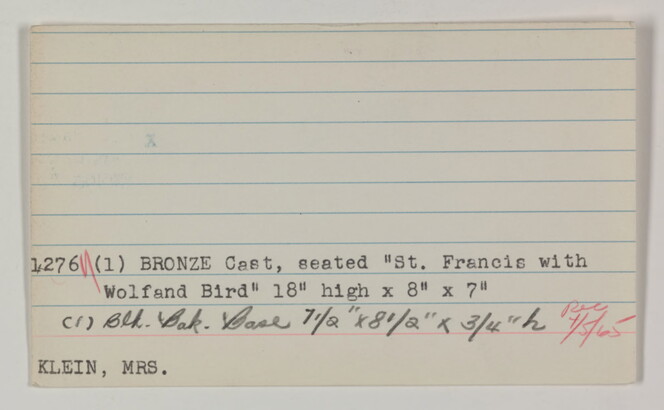 x
4276 (1) BRONZE Cast, seated "St. Francis with
Wolfand Bird" 18" high x 8" x 7"
(1) Blk. Bak. Base 7 1/2" x 8 1/2" x 3/4" h
Rec
7/5/65
KLEIN, MRS.